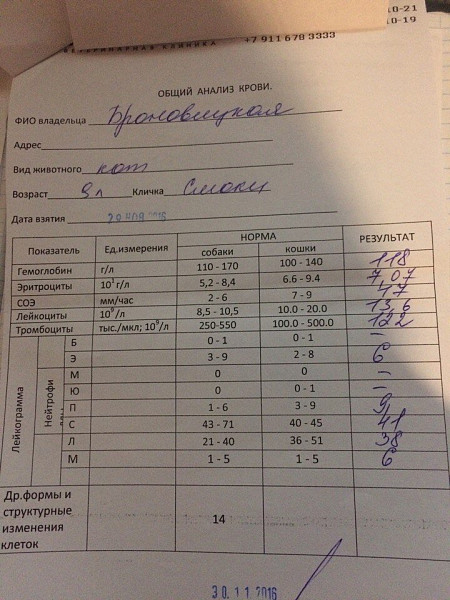 0-21
0-19
ВЕТЕРИНАРНАЯ КЛИНИКА +7 911 678 3333
ОБЩИЙ АНАЛИЗ КРОВИ.
ФИО владельца
Адрес
Вид животного кот
Возраст 9 л Кличка Смоки
Дата взятия 2016
Показатель Ед.измерения НОРМА РЕЗУЛЬТАТ
собаки кошки
Гемоглобин г/л 110 - 170 100 - 140 118
Эритроциты г/л 5,2 - 8,4 6.6 - 9.4 7,07
СОЭ мм/час 2 - 6 7 - 9 47
Лейкоциты 10⁹/л 8,5 - 10,5 10.0 - 20.0 13,6
Тромбоциты тыс./мкл; 10⁹/л 250-550 100.0 - 500.0 122
Лейкограмма Нейтрофи
Б 0 - 1 0 - 1 –
Э 3 - 9 2 - 8 6
М 0 0 –
Ю 0 0 - 1 –
П 1 - 6 3 - 9 9
С 43 - 71 40 - 45 41
Л 21 - 40 36 - 51 38
М 1 - 5 1 - 5 6
Др.формы и
структурные
изменения 14
клеток
30.11.2016